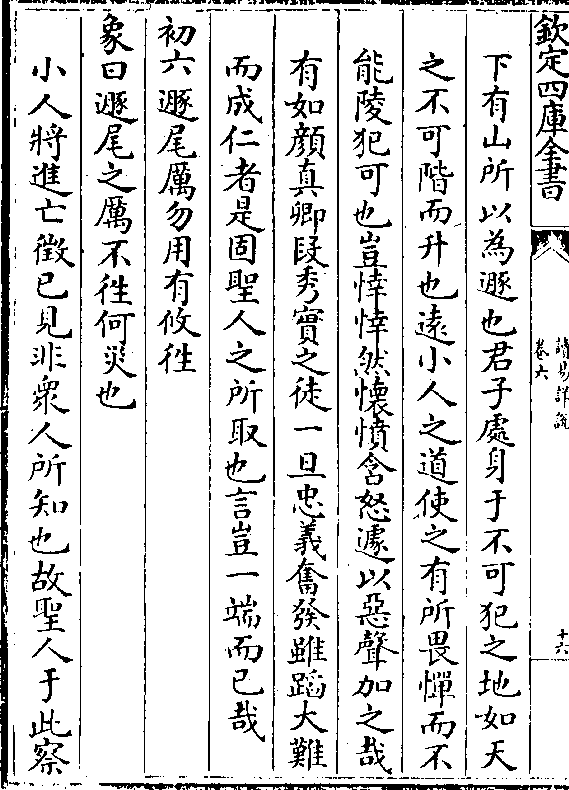 欽定四庫全書
讀易詳說
卷六
十六
下有山所以為遯也君子處身于不可犯之地如天
之不可階而升也逺小人之道使之有所畏憚而不
能陵犯可也豈悻悻然懷憤含怒遽以惡聲加之哉
有如顔真卿段秀實之徒一旦忠義奮發雖蹈大難
而成仁者是固聖人之所取也言豈一端而已哉
初六遯尾厲勿用有攸徃
象曰遯尾之厲不徃何災也
小人將進亡徵已見非衆人所知也故聖人于此察